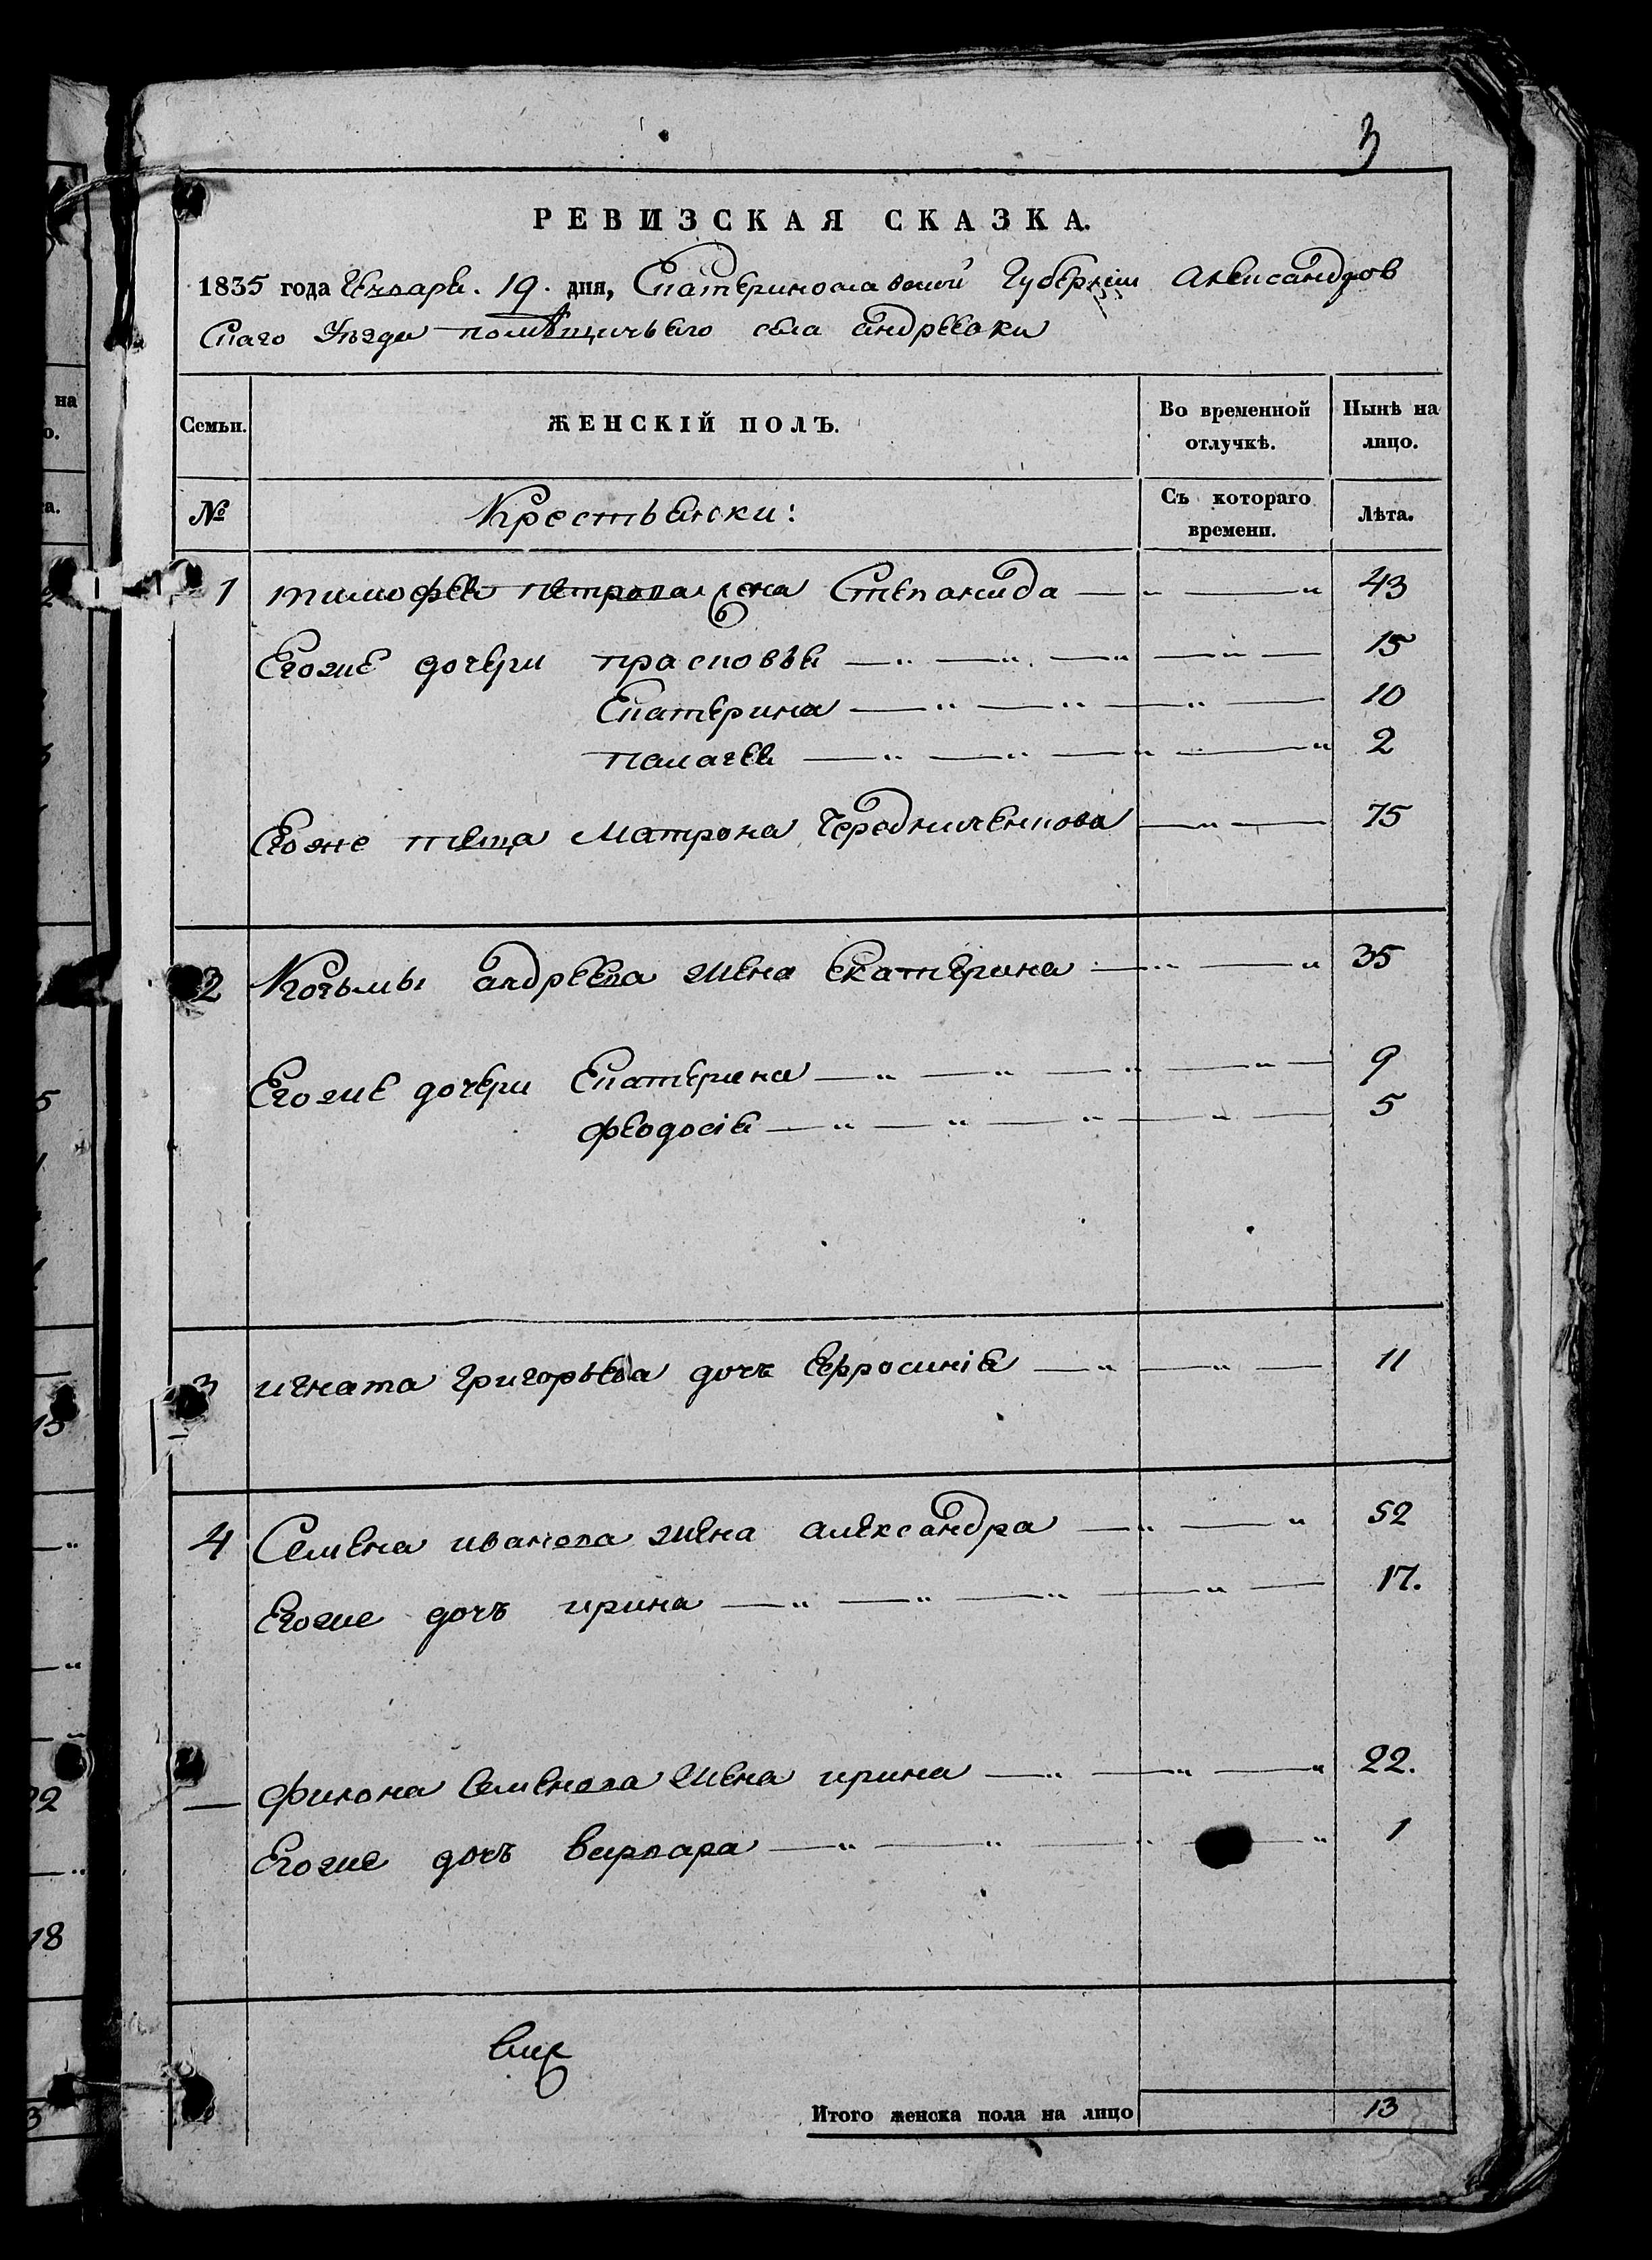 3
РЕВИЗСКАЯ СКАЗКА.
1835 года Генваря. 19. дня, Екатеринославской Губернии Александров
скаго Уезда помѣщичьяго села андреевки
на
о.
Семьи.
ЖЕНСКІЙ ПОЛЪ.
Во временной отлучкѣ.
Нынѣ на лицо.
а.
№
Крестьянски:
Съ котораго времени.
Лѣта.
1 тимофея петрова жена Степанида — „ — „ 43
Егоже дочери прасковья — „ — „ — „ — „ — 15
Екатерина — „ — „ — „ — 10
палагея — „ — „ — „ — „ 2
Егоже теща Матрона Чередниченкова — „ — 75
2 Козьмы андреева жена екатерина — „ — „ 35
Егоже дочери Екатерина — „ — „ — „ — „ — 9
феодосія — „ — „ — „ — „ — 5
3 игната григорьева дочь Ефросинія — „ — „ — 11
4 Семена иванова жена александра — „ — „ 52
Егоже дочъ ирина — „ — „ — „ — „ — 17.
— филона Семенова жена ирина — „ — „ — „ 22.
Егоже дочъ варвара — „ — „ — „ — „ 1
Итого женска пола на лицо 13